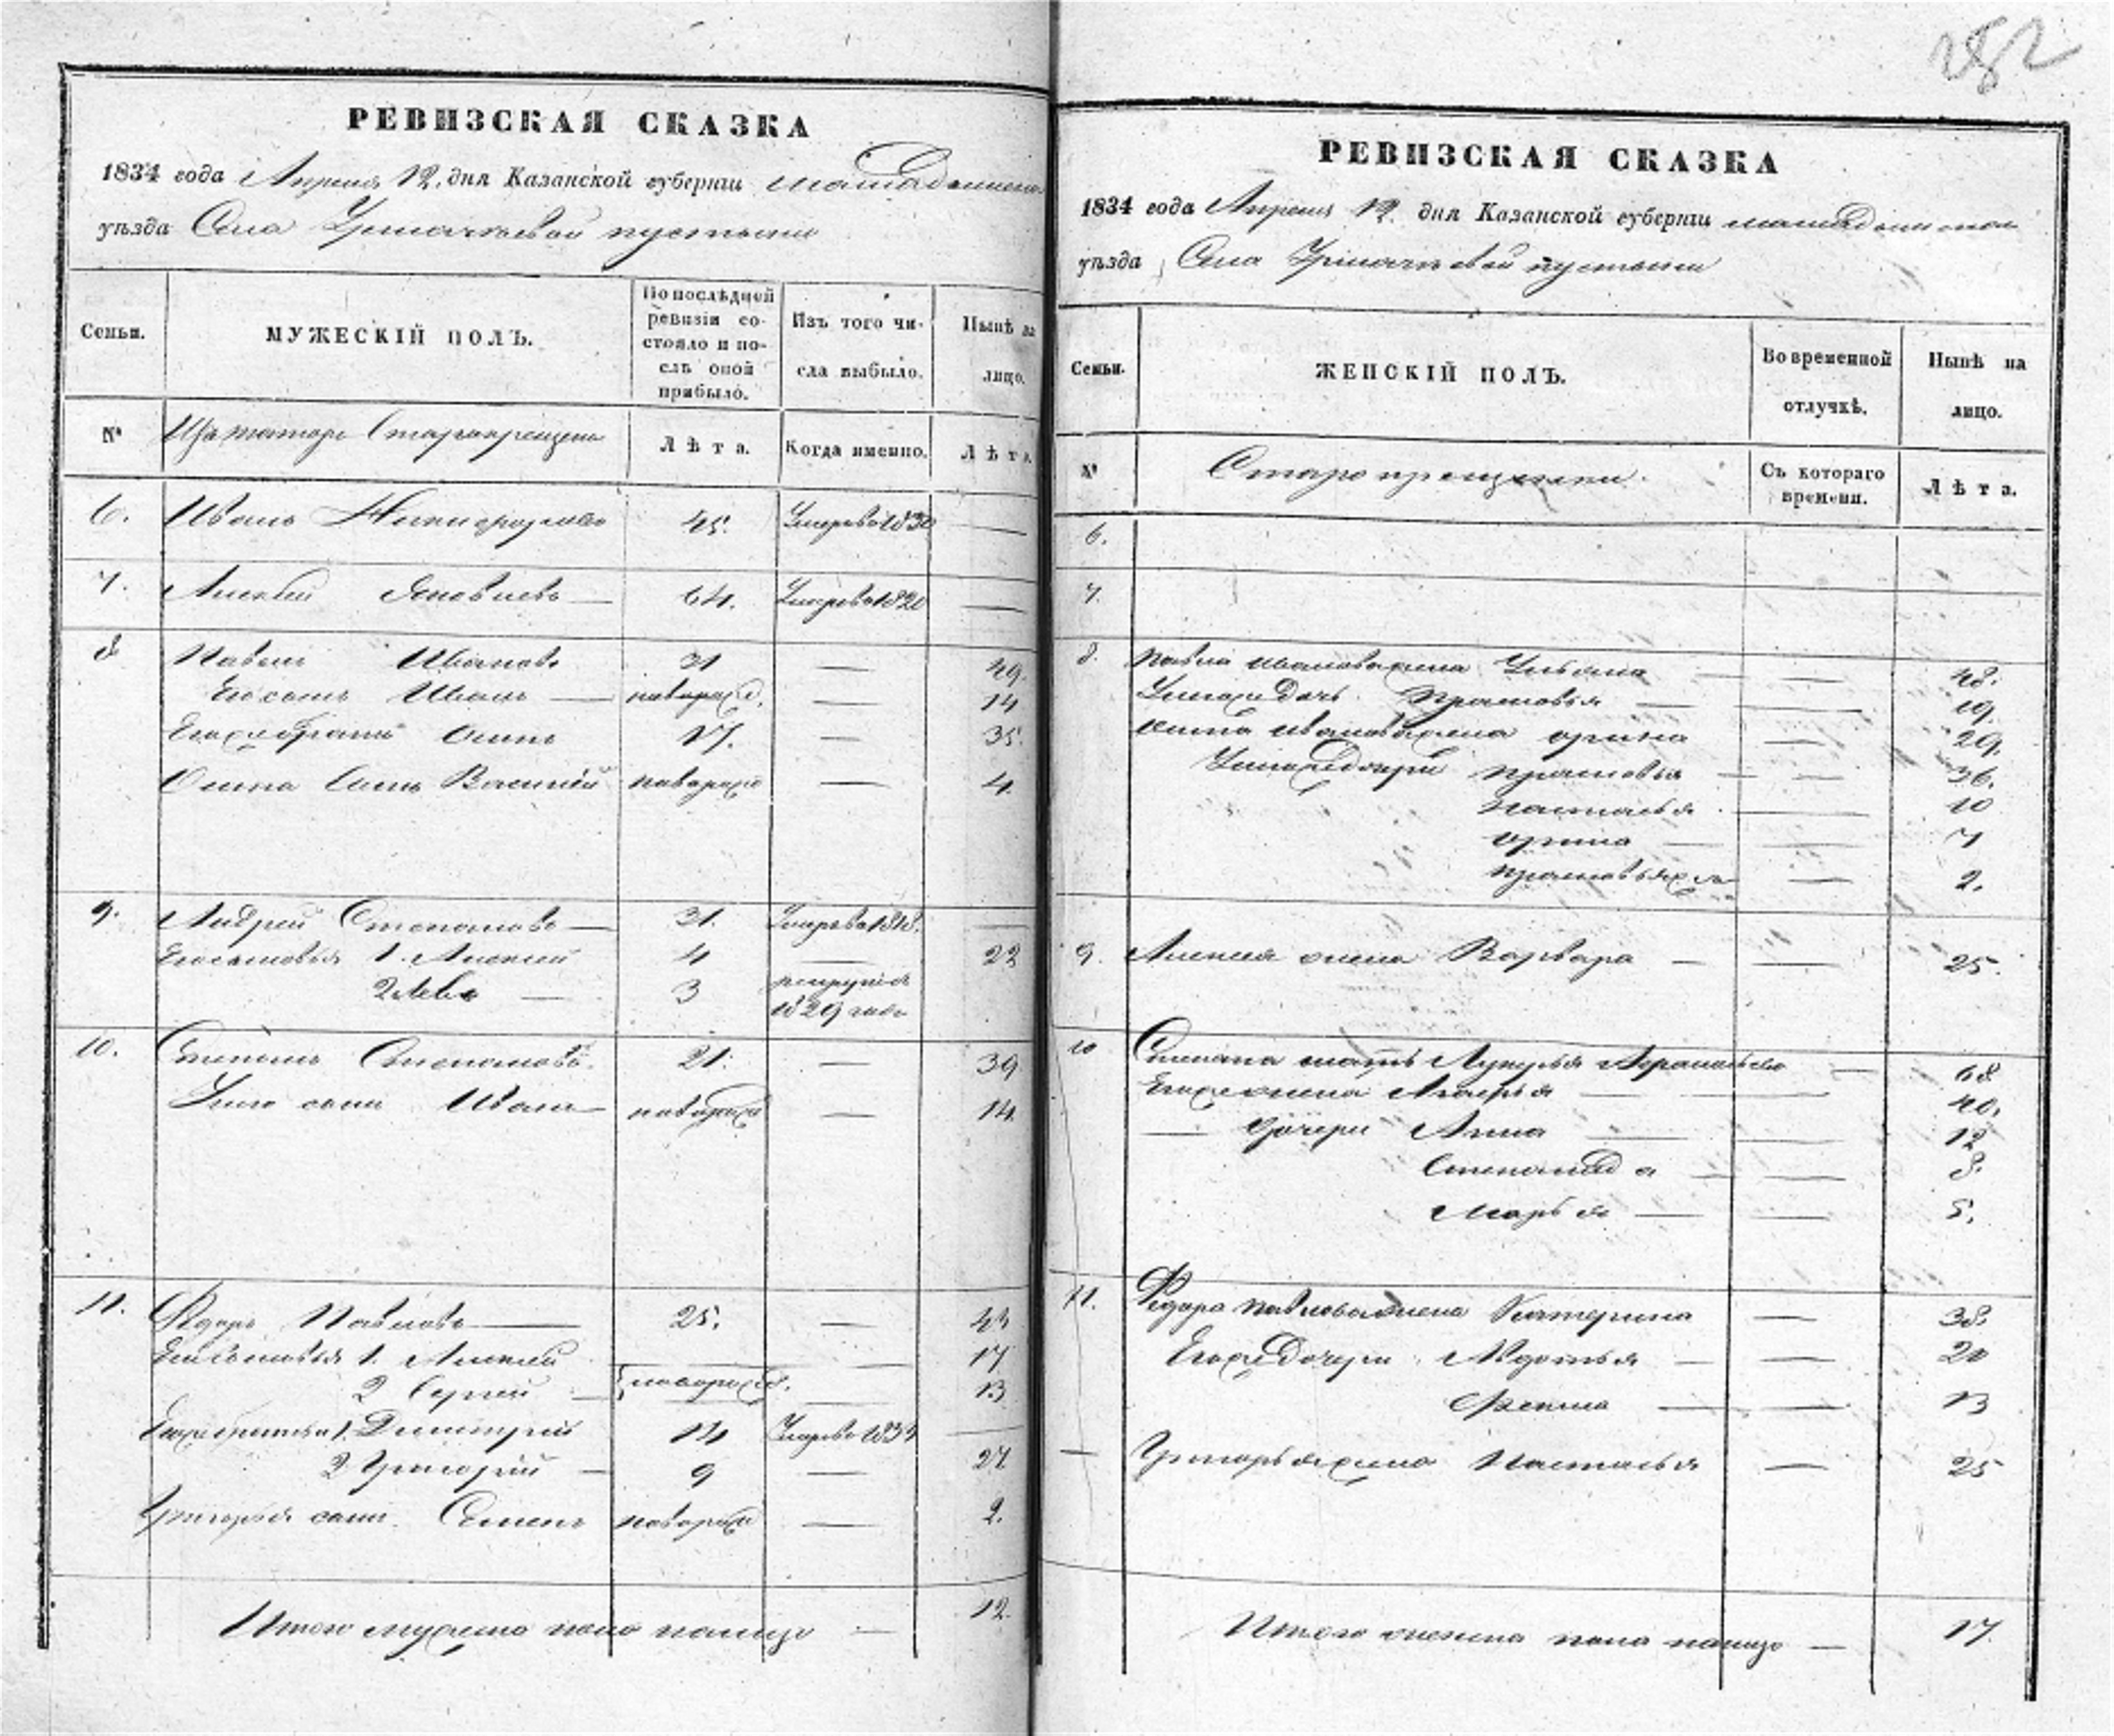 282
РЕВИЗСКАЯ СКАЗКА
1834 года Апреля 12. дня Казанской губернiи мамадышска
уѣзда Села Урмачкевой пустыни
Семьи.
МУЖЕСКIЙ ПОЛЪ.
По послѣдней ревизiи состояло и послѣ оной прибыло.
Изъ того числа выбыло.
Нынѣ на лицо.
№
Изъ татаръ Старокрещенъ
Лѣта.
Когда именно.
Лѣта.
6. Иванъ Никифоровъ 45. Умеръ въ 1830 —
7. Алексей Яковлевъ — 64. Умеръ въ 1820 —
8 Павелъ Ивановъ 31 — 49.
Его сынъ Иванъ — новорожд. — 14
Его же братъ Осипъ 17. — 35.
Осипа сынъ Василий новорожд — 4.
9. Андрей Степановъ — 31. Умеръ въ 1818. —
Его сыновья 1. Алексей 4 — 22
2 Левъ — 3 рекрутъ
1829 года
10. Степанъ Степановъ. 21. — 39
Ево сынъ Иванъ — новорожд — 14.
11. Федоръ Павловъ — 25. — 43
Его сыновья 1. Алексей — 17
2 Сергей — новорожд. — 13
Его же братья 1. Дмитрей 14 Умеръ въ 1834 —
2 Григорiй — 9 — 27
Григорья сынъ Семенъ новорожд — 2.
Итого мужеска пола налицо — 12.
РЕВИЗСКАЯ СКАЗКА
1834 года Апреля 12. дня Казанской губернiи мамадышской
уѣзда Села Урмачкевой пустыни
Семьи.
ЖЕНСКIЙ ПОЛЪ.
Во временной отлучкѣ.
Нынѣ на лицо.
№
Старокрещенки.
Съ котораго времени.
Лѣта.
6.
7.
8. Павла Иванова жена Ульяна — — 48.
У них же дочь Прасковья — — 19.
Осипа Иванова жена Орина — 29.
У них же дочери Прасковья — — 36.
Настасья — 10
Орина — — 7
Прасковья же — — 2.
9. Алексея жена Варвара — — 25.
10 Степана мать Лукерья Афанасьева — 68
Его же жена Агафья — — 40.
— Дочери Анна — — 12
Степанида — — 8.
Марья — — 5.
11. Федора Павлова жена Катерина — 38.
Его же дочери Авдотья — — 20
Фекла — — 13
— Григорья жена Настасья — 25
Итого женска пола налицо — 17.